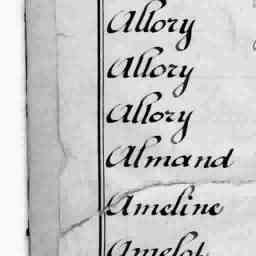 Allory
Allory
Allory
Almand
Ameline
Amelot